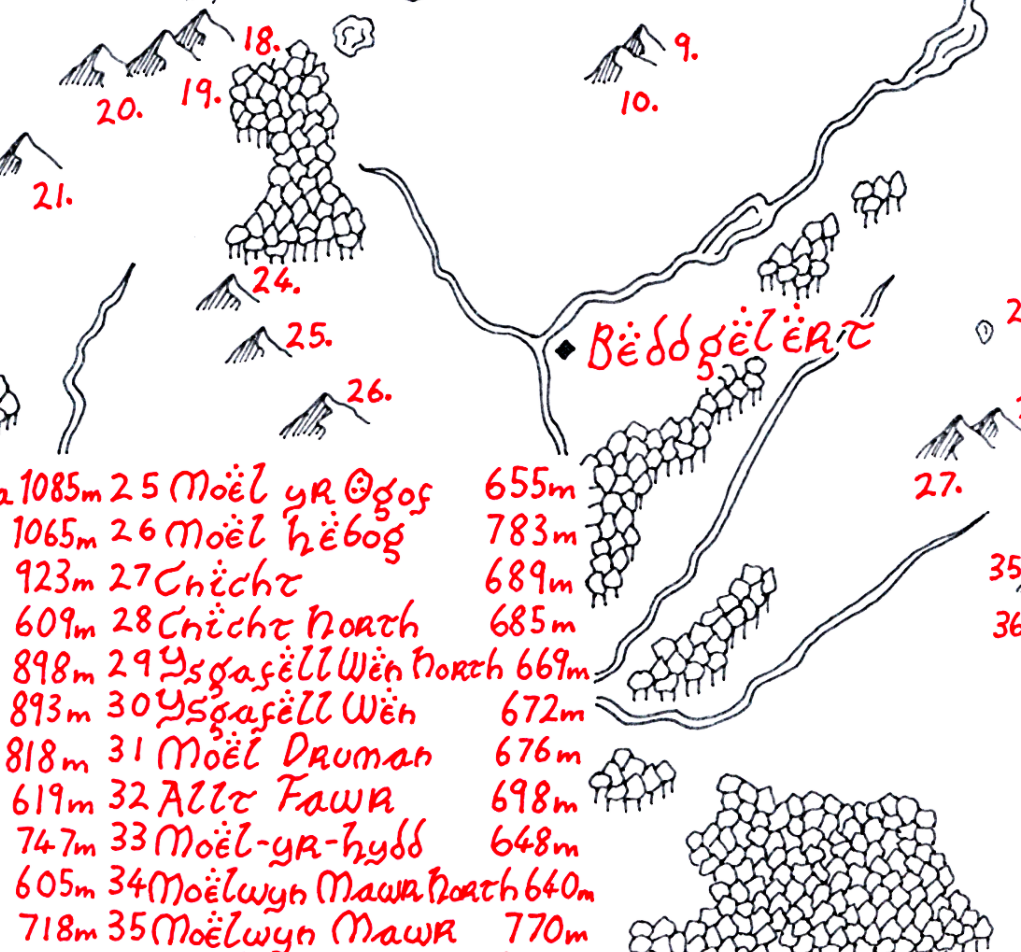 18.
9.
20.
19.
10.
21.
24.
Bëddgëlërt
25.
26.
27.
a 1085m 25 Moël yr Ogof 655m
1065m 26 Moël hëbog 783m
923m 27 Cnïcht 689m
35
609m 28 Cnïcht North 685m
36
898m 29 Ysgafëll Wën North 669m
893m 30 Ysgafëll Wën 672m
818m 31 Moël Druman 676m
619m 32 Allt Fawr 698m
747m 33 Moël-yr-hydd 648m
605m 34 Moëlwyn Mawr North 640m
718m 35 Moëlwyn Mawr 770m